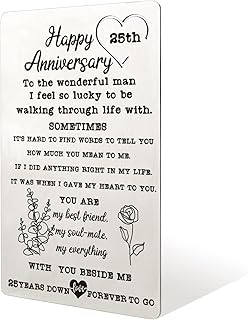 Happy 25th
Anniversary
To the wonderful man
I feel so lucky to be
walking through life with.
SOMETIMES
IT'S HARD TO FIND WORDS TO TELL YOU
HOW MUCH YOU MEAN TO ME.
IF I DID ANYTHING RIGHT IN MY LIFE.
IT WAS WHEN I GAVE MY HEART TO YOU.
YOU ARE
my best friend,
my soul-mate,
my everything
WITH YOU BESIDE ME
25 YEARS DOWN FOREVER TO GO